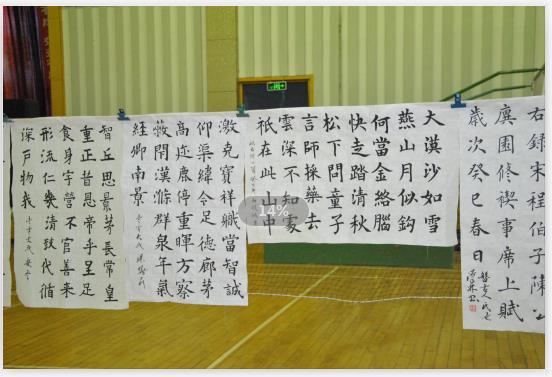 右録宋程伯子陳公
廙園修禊事席上賦
歲次癸巳春日
大漠沙如雪
燕山月似鈎
何當金絡腦
快走踏清秋
松下問童子
言師採藥去
雲深不知處
祇在此山中
激克寶祥職當智誠
仰渠緯令足德廊茅
高近康停重暉方察
薇開漢滌群泉年氣
經卿南景
智丘思景茅長常皇
重正昔恩帝乎呈足
食身字營不官善來
形流仁幾清致代循
深戶物我
14%